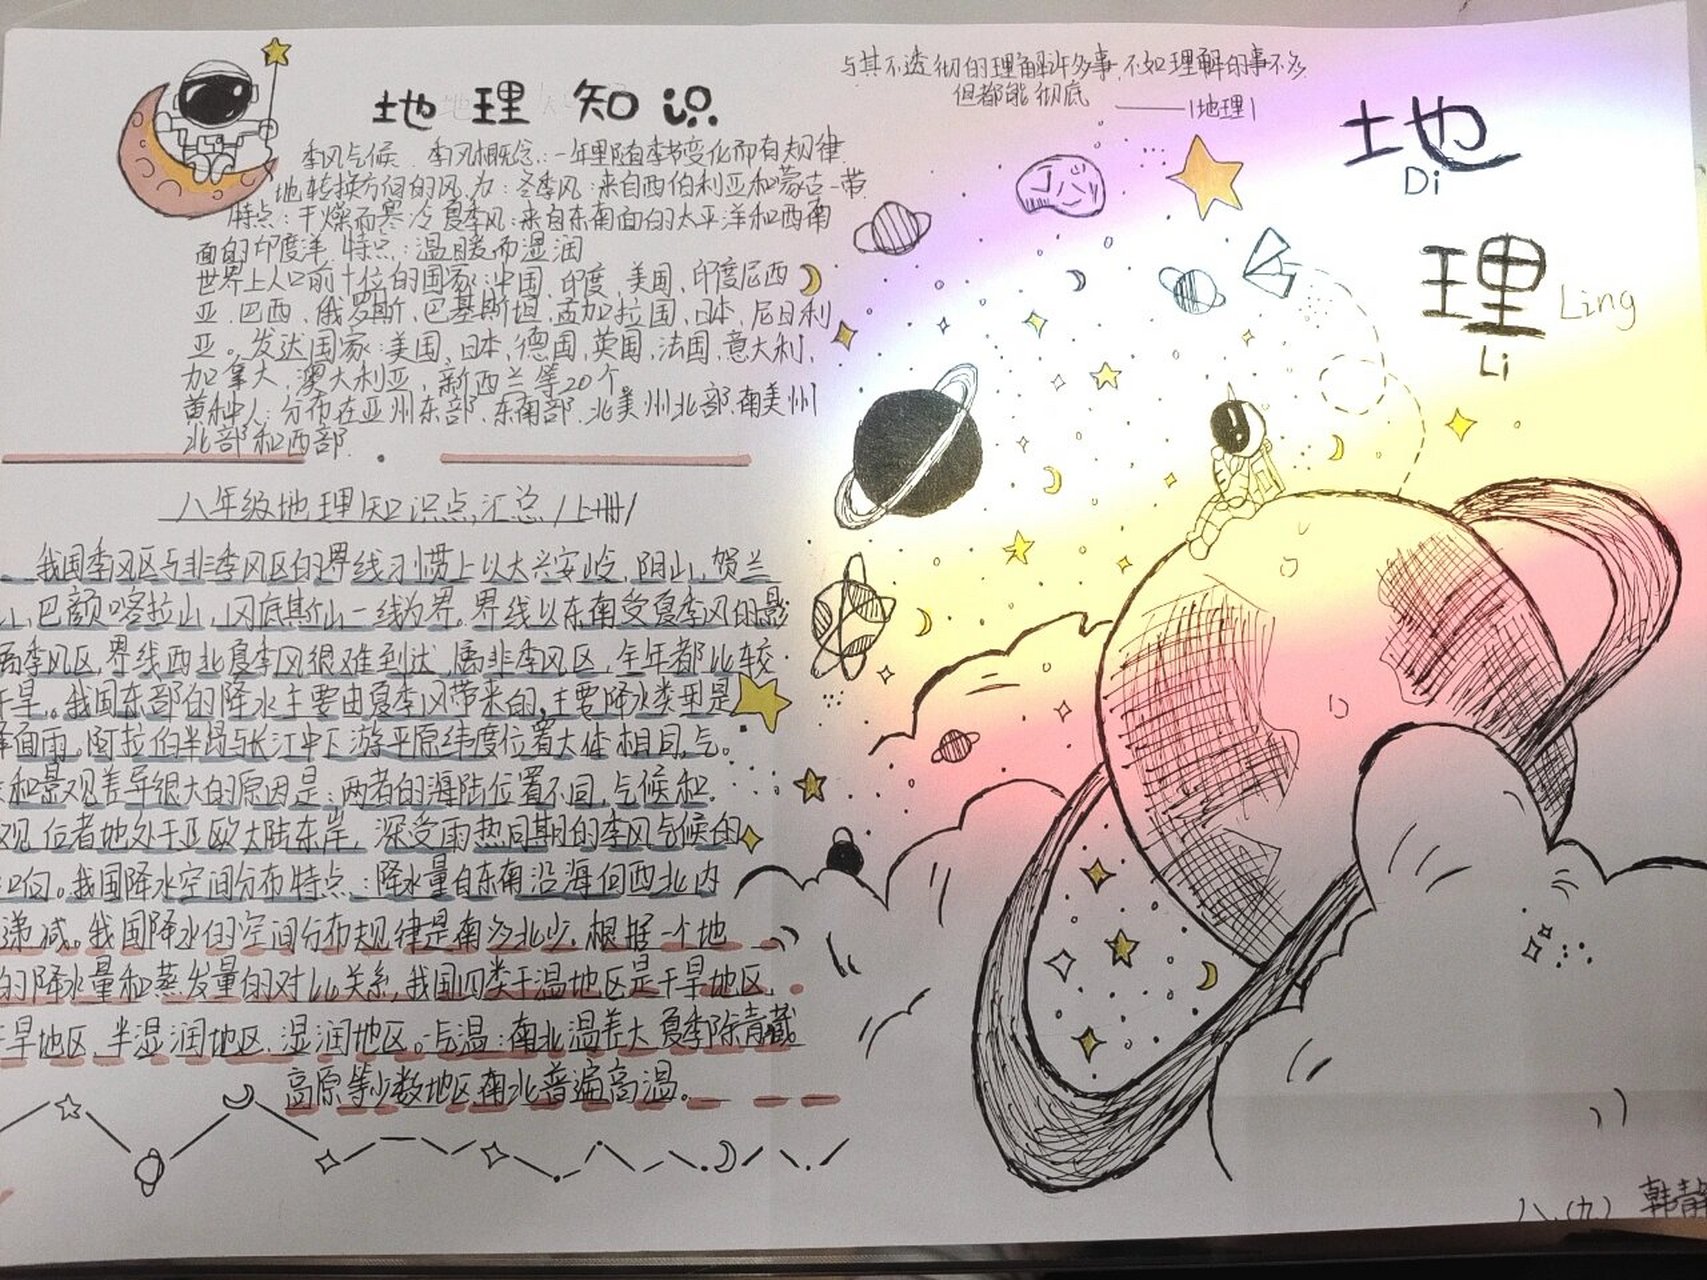 地理知识
季风气候 季风概念:一年里随季节变化而有规律
地转换方向的风 为:冬季风:来自西伯利亚和蒙古一带
特点:干燥而寒冷 夏季风:来自东南面的太平洋和西南
面的印度洋 特点:温暖而湿润
世界上人口前十位的国家:中国、印度、美国、印度尼西
亚、巴西、俄罗斯、巴基斯坦、孟加拉国、日本、尼日利
亚。发达国家:美国、日本、德国、英国、法国、意大利、
加拿大、澳大利亚、新西兰等20个
黄种人:分布在亚州东部、东南部、北美州北部、南美州
北部和西部.
八年级地理知识点汇总/上册/
、我国季风区与非季风区的界线习惯上以大兴安岭、阴山、贺兰
山、巴颜喀拉山、冈底斯山一线为界。界线以东南受夏季风的影
季风区,界线西北夏季风很难到达,属非季风区,全年都比较
干旱。我国东部的降水主要由夏季风带来的,主要降水类型是
锋面雨。阿拉伯半岛与长江中下游平原纬度位置大体相同,气。
和景观差异很大的原因是:两者的海陆位置不同,气候和.
观 后者地处于亚欧大陆东岸,深受雨热同期的季风气候的
向。我国降水空间分布特点:降水量自东南沿海向西北内
递减。我国降水的空间分布规律是南多北少.根据一个地
的降水量和蒸发量的对比关系,我国四类干湿地区是干旱地区、
旱地区、半湿润地区、湿润地区。气温:南北温差大 夏季除青藏
高原等少数地区南北普遍高温。
与其不透彻的理解许多事,不如理解的事不多
但都能彻底
——/地理/
地
Di
理
Ling
Li
八.(九) 韩静